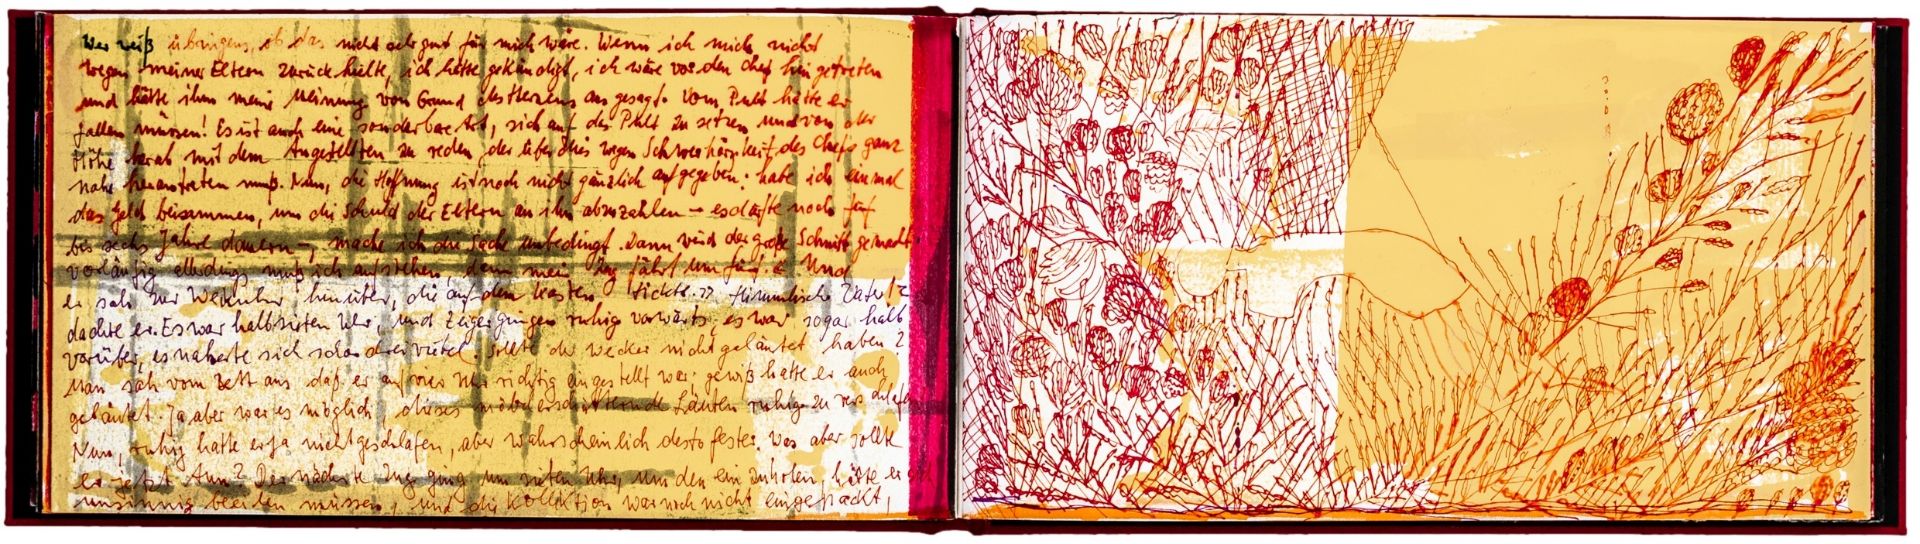 Wer weiß übrigens, ob das nicht sehr gut für mich wäre. Wenn ich mich nicht
wegen meiner Eltern zurückhielte, ich hätte gekündigt, ich wäre vor den Chef hin getreten
und hätte ihm meine Meinung von Grund des Herzens aus gesagt. Vom Pult hätte er
fallen müssen! Es ist auch eine sonderbare Art, sich auf das Pult zu setzen und von der
Höhe herab mit dem Angestellten zu reden, der überdies wegen Schwerhörigkeit des Chefs ganz
nahe herantreten muß. Nun, die Hoffnung ist noch nicht gänzlich aufgegeben; habe ich einmal
das Geld beisammen, um die Schuld der Eltern an ihn abzuzahlen – es dürfte noch fünf
bis sechs Jahre dauern –, mache ich die Sache unbedingt. Dann wird der große Schnitt gemacht.
Vorläufig allerdings muß ich aufstehen, denn mein Zug fährt um fünf.« Und
er sah zur Weckuhr hinüber, die auf dem Kasten tickte. »Himmlischer Vater!«
dachte er. Es war halb sieben Uhr, und Zeiger gingen ruhig vorwärts, es war sogar halb
vorüber, es näherte sich schon dreiviertel. Sollte der Wecker nicht geläutet haben?
Man sah vom Bett aus, daß er auf vier Uhr richtig eingestellt war; gewiß hatte er auch
geläutet. Ja aber war es möglich, dieses möbelerschütternde Läuten ruhig zu
Nun, ruhig hatte er ja nicht geschlafen, aber wahrscheinlich desto fester. Was aber sollte
er jetzt tun? Der nächste Zug ging um sieben Uhr, um den einzuholen, hätte er sich
unsinnig beeilen müssen, und die Kollektion war noch nicht eingepackt,